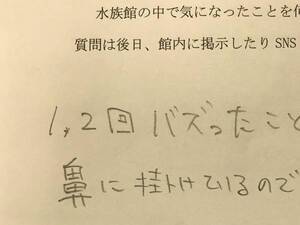 水族館の中で気になったことを何
質問は後日、館内に掲示したり SNS
1,2回バズったこと
鼻に掛けているので